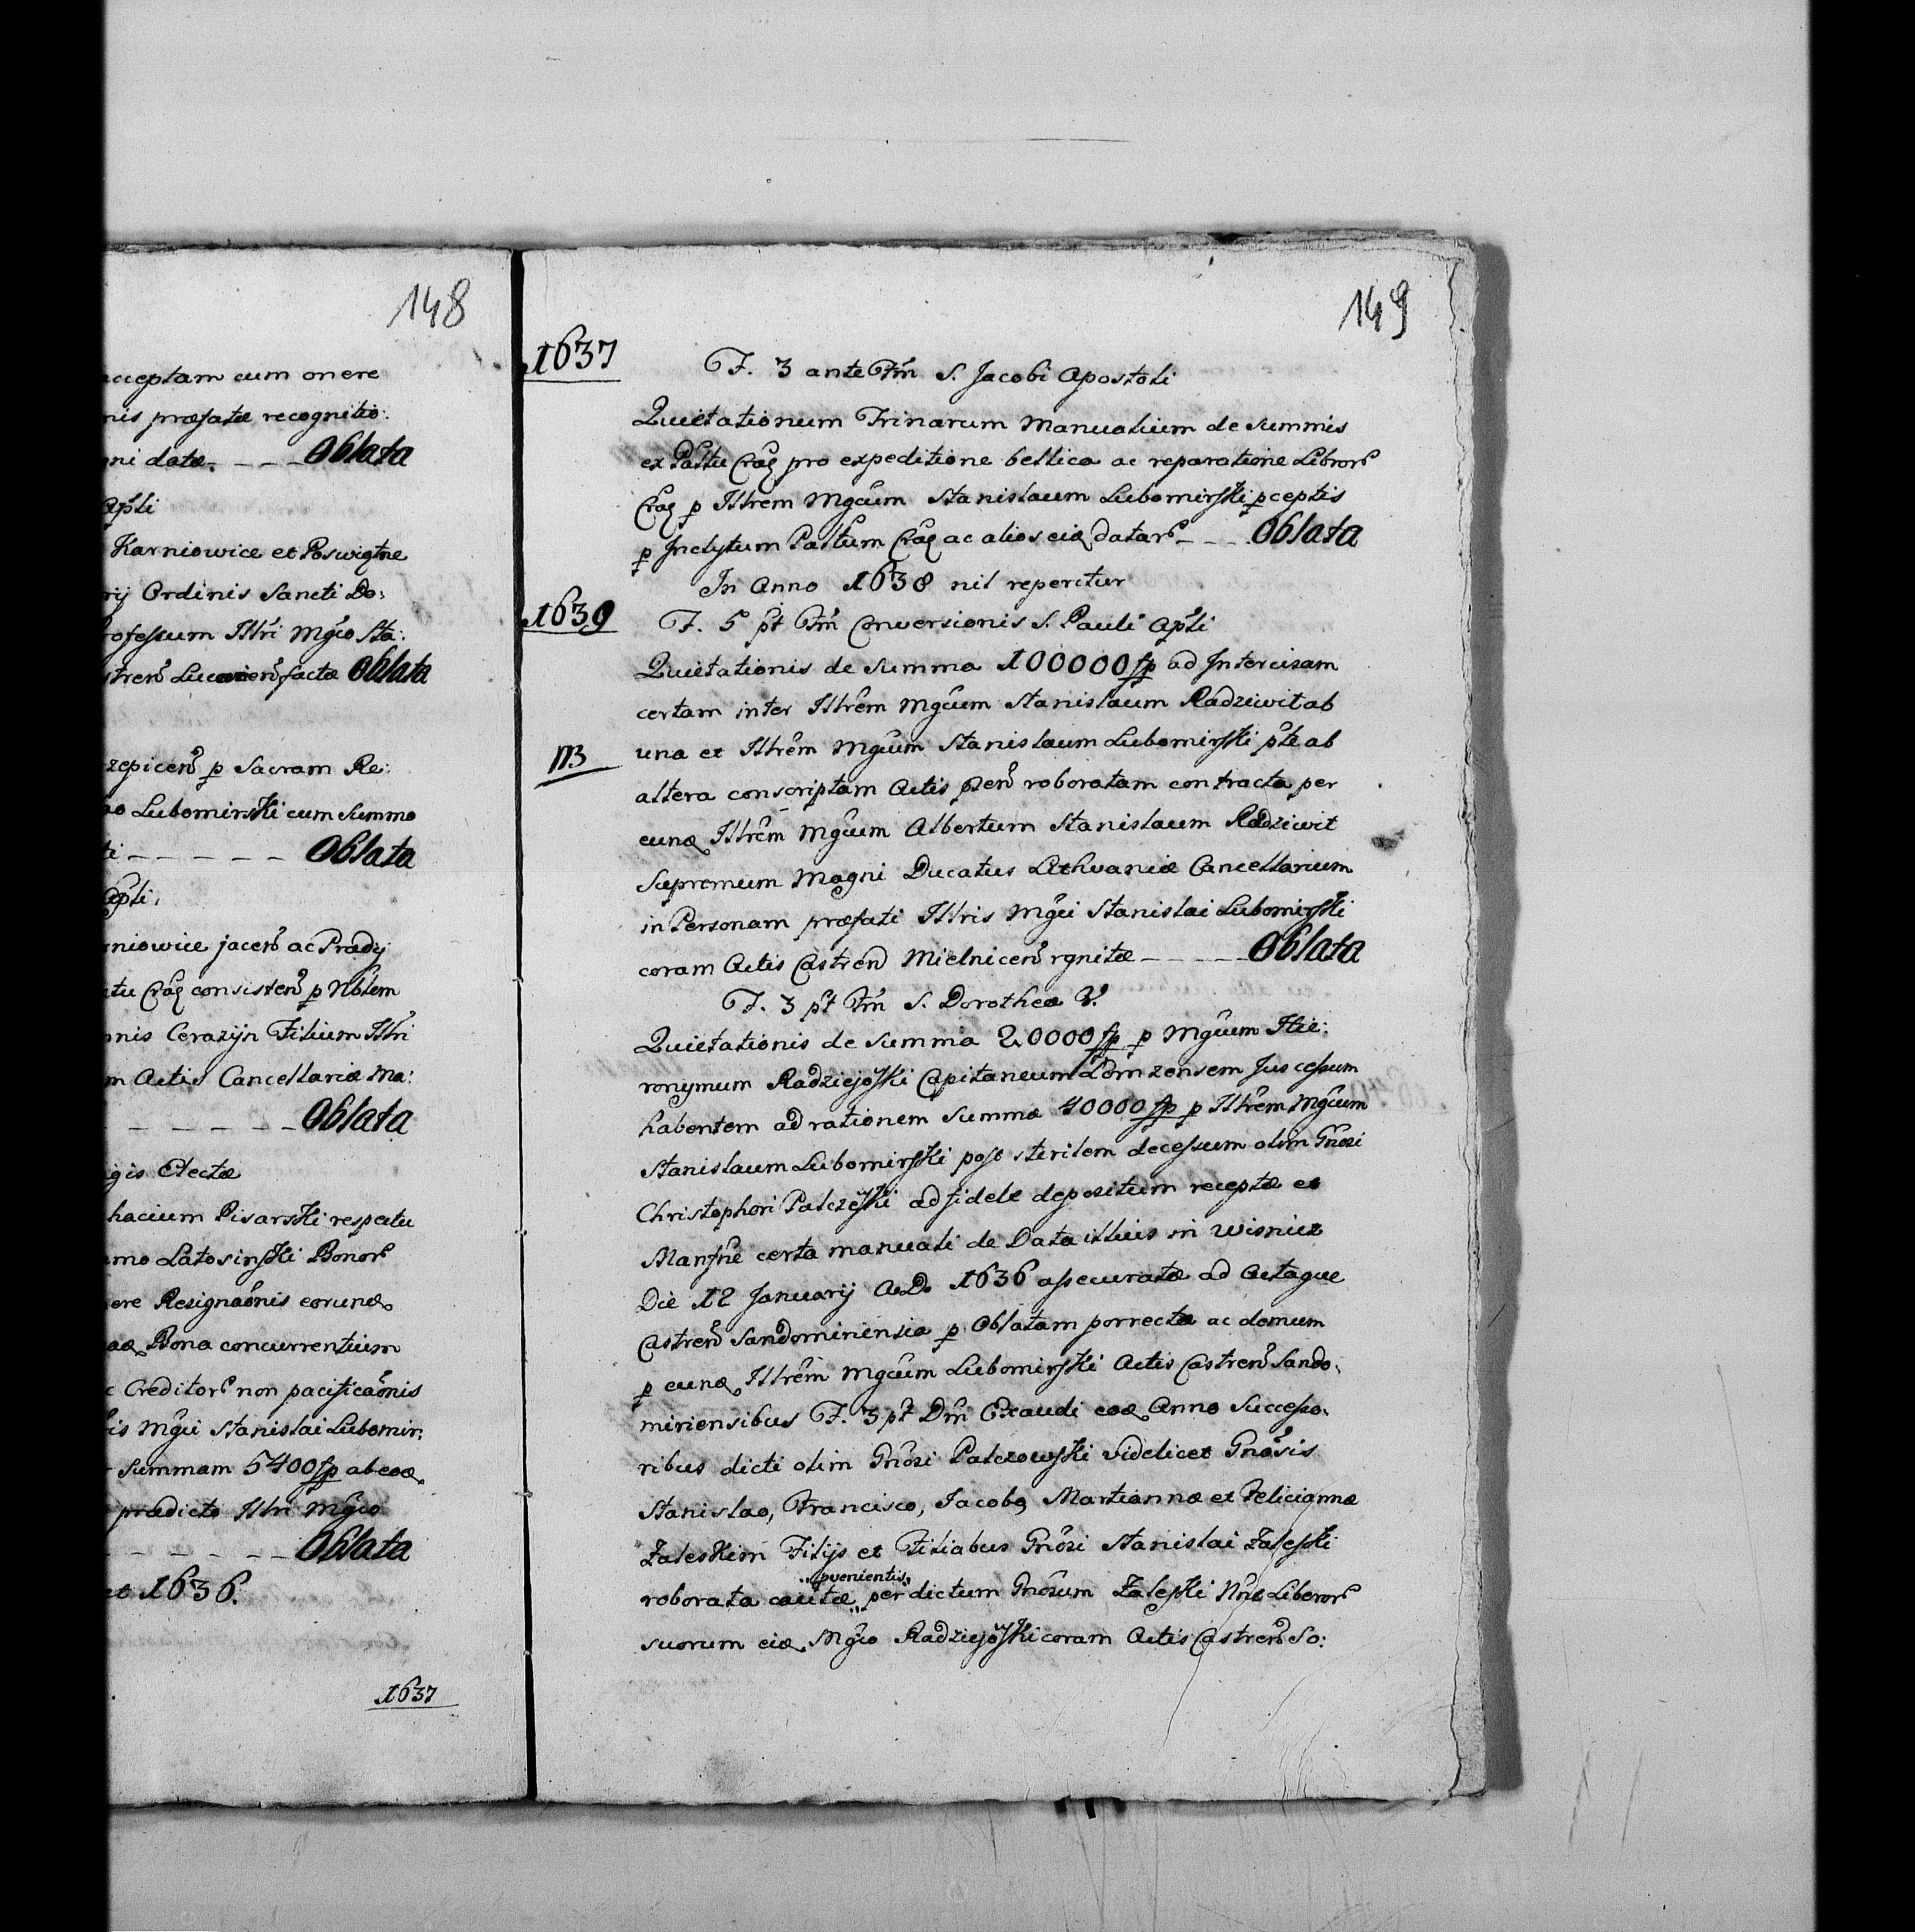 148
acceptam cum onere
nis præfatæ recognitio:
ni datæ. - - - Oblata
Apli
Karniowice et Poswiętne
rij Ordinis Sancti Do:
rofessum Illri Mgco Sta:
stren factæ Oblata
zepicen p Sacram Re:
ao Lubomirski cum Summo
ti - - - - - Oblata
Apli.
niowice jacen ac Prædij
atu Crac consisten p Nblem
nnis Cerazyn Filium Illri
m Actis Cancellariæ Ma:
- - - - - - Oblata
gis Electæ
hacium Pisarski respectu
amo Latosinski Bonor
ere Resignaonis eorund
ad Bona concurrentium
c Creditor non pacificaonis
is Mgci Stanislai Lubomir:
Summam 5400 fp ab eod
prædicto Illri Mgco
- - - - - - Oblata
et 1636.
1637
149
1637
F. 3 ante Fm S. Jacobi Apostoli
Quietationum Trinarum Manualium de Summis
ex Pallu Crac pro expeditione bellica ac reparatione Libror
Crac p Illrem Mgcum Stanislaum Lubomirski pceptis
p Inclytum Paltum Crac ac alios eid datar - - - Oblata
In Anno 1638 nil reperitur
1639
F. 5 pt Fm Conversionis S. Pauli Apli
Quietationis de Summa 100000 fp ad Intercisam
certam inter Illrem Mgcum Stanislaum Radziwil ab
NB
una et Illrem Mgcum Stanislaum Lubomirski pte ab
altera conscriptam Actis pzen roboratam contracta per
eund Illrem Mgcum Albertum Stanislaum Radziwil
Supremum Magni Ducatus Lithvaniæ Cancellarium
in Personam præfati Illris Mgci Stanislai Lubomirski
coram Actis Castren Mielnicen rgnitæ - - - - - Oblata
F. 3 pt Fm S. Dorotheæ V.
Quietationis de Summa 20000 fp p Mgcum Hie:
ronymum Radziejoski Capitaneum Lomzensem Jus cessum
habentem ad rationem Summæ 40000 fp p Illrem Mgcum
Stanislaum Lubomirski post sterilem decessum olim Gnosi
Christophori Palczeski ad fidele depositum receptæ et
certa manuali de Data illius in Wisnicz
Die 12 Januarij A.D. 1636 assecuratæ ad Actaque
Castren Sandomiriensia p Oblatam porrectæ ac demum
p eund Illrem Mgcum Lubomirski Actis Castren Sando:
miriensibus F. 3 pt Dm Exaudi eod Anno Successo:
ribus dicti olim Gnosi Palczowski videlicet Gnosis
Stanislao, Francisco, Jacobo, Mariannæ et Feliciannæ
Zaleskim Filijs et Filiabus Gnosi Stanislai Zaleski
pvenientis
roborata cautæ per dictum Gnosum Zaleski Nne Liberor
suorum eid Mgco Radziejoski coram Actis Castren So: